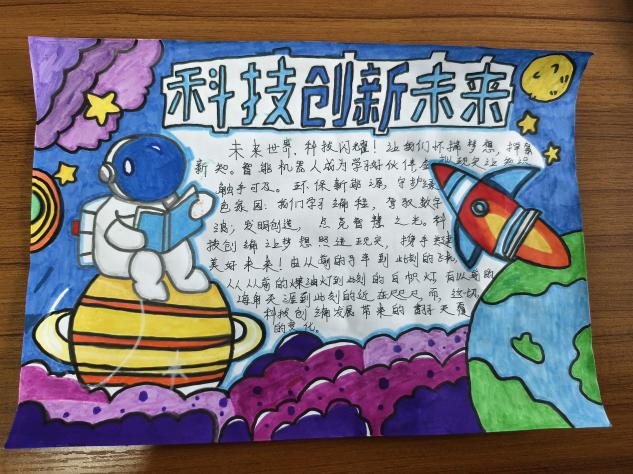 科技创新未来
未来世界,科技闪耀!让我们怀揣梦想,探索
新知。智能机器人成为学习好伙伴,让知识
触手可及。环保新能源,守护绿
色家园;我们学习编程,驾驭数字
浪;发明创造,点亮智慧之光。科
技创新让梦想照进现实,携手共建
美好未来!由从前的手车到此刻的飞机,
从从前的煤油灯到此刻的白帜灯,有从前的
海角天涯到此刻的近在咫尺,而,这切
科技创新发展带来的翻天覆
的变化。